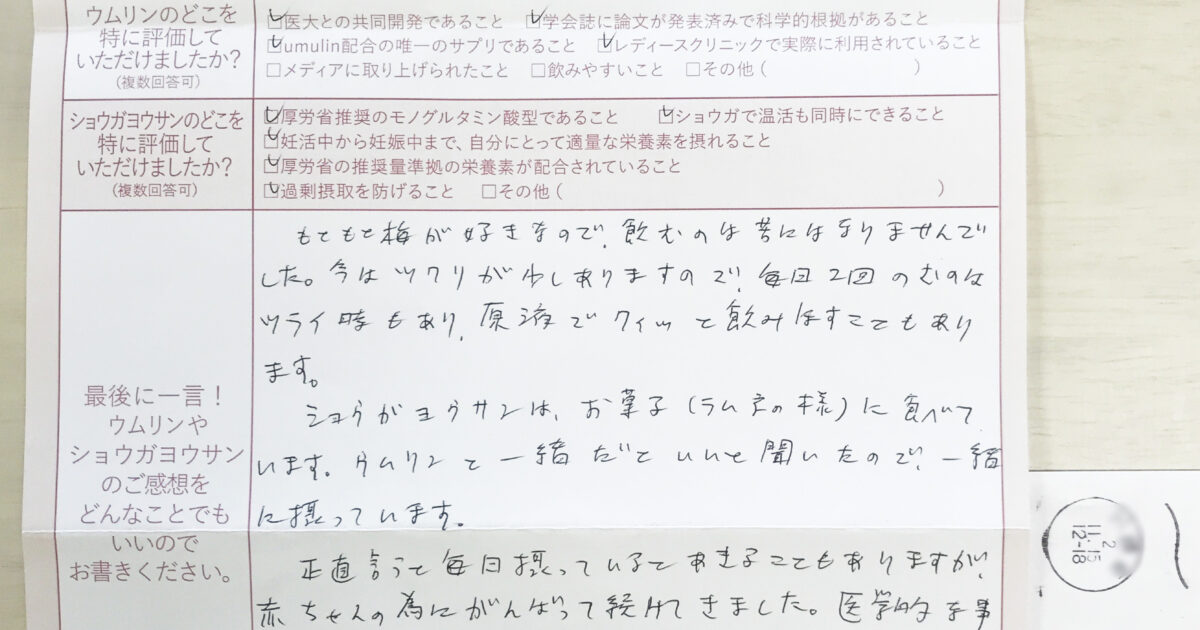 ウムリンのどこを
特に評価して
いただけましたか?
(複数回答可)
☑医大との共同開発であること ☑学会誌に論文が発表済みで科学的根拠があること
☑umulin配合の唯一のサプリであること ☑レディースクリニックで実際に利用されていること
□メディアに取り上げられたこと □飲みやすいこと □その他 ( )
ショウガヨウサンのどこを
特に評価して
いただけましたか?
(複数回答可)
☑厚労省推奨のモノグルタミン酸型であること ☑ショウガで温活も同時にできること
☑妊活中から妊娠中まで、自分にとって適量な栄養素を摂れること
☑厚労省の推奨量準拠の栄養素が配合されていること
☑過剰摂取を防げること □その他 ( )
最後に一言!
ウムリンや
ショウガヨウサン
のご感想を
どんなことでも
いいので
お書きください。
もともと梅が好きなので、飲むのは苦にはなりませんで
した。今はツワリが少しありますので、毎日2回のむのは
ツライ時もあり、原液でクイッと飲みほすこともあり
ます。
ショウガヨウサンは、お菓子(ラムネの様)に食べて
います。ウムリンと一緒だといいと聞いたので、一緒
に摂っています。
正直言うと毎日摂っているとあきることもありますが、
赤ちゃんの為にがんばって続けてきました。医学的な事
2
11-15
12-18